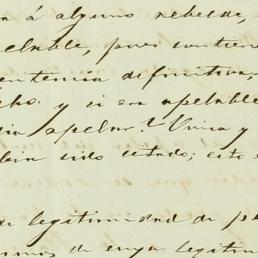 á alguno rebelde,
pues contiene
sentencia definitiva,
y si era apelable
apelar? Unica y
sido citado; esto
legitimidad de
de cuya legitim